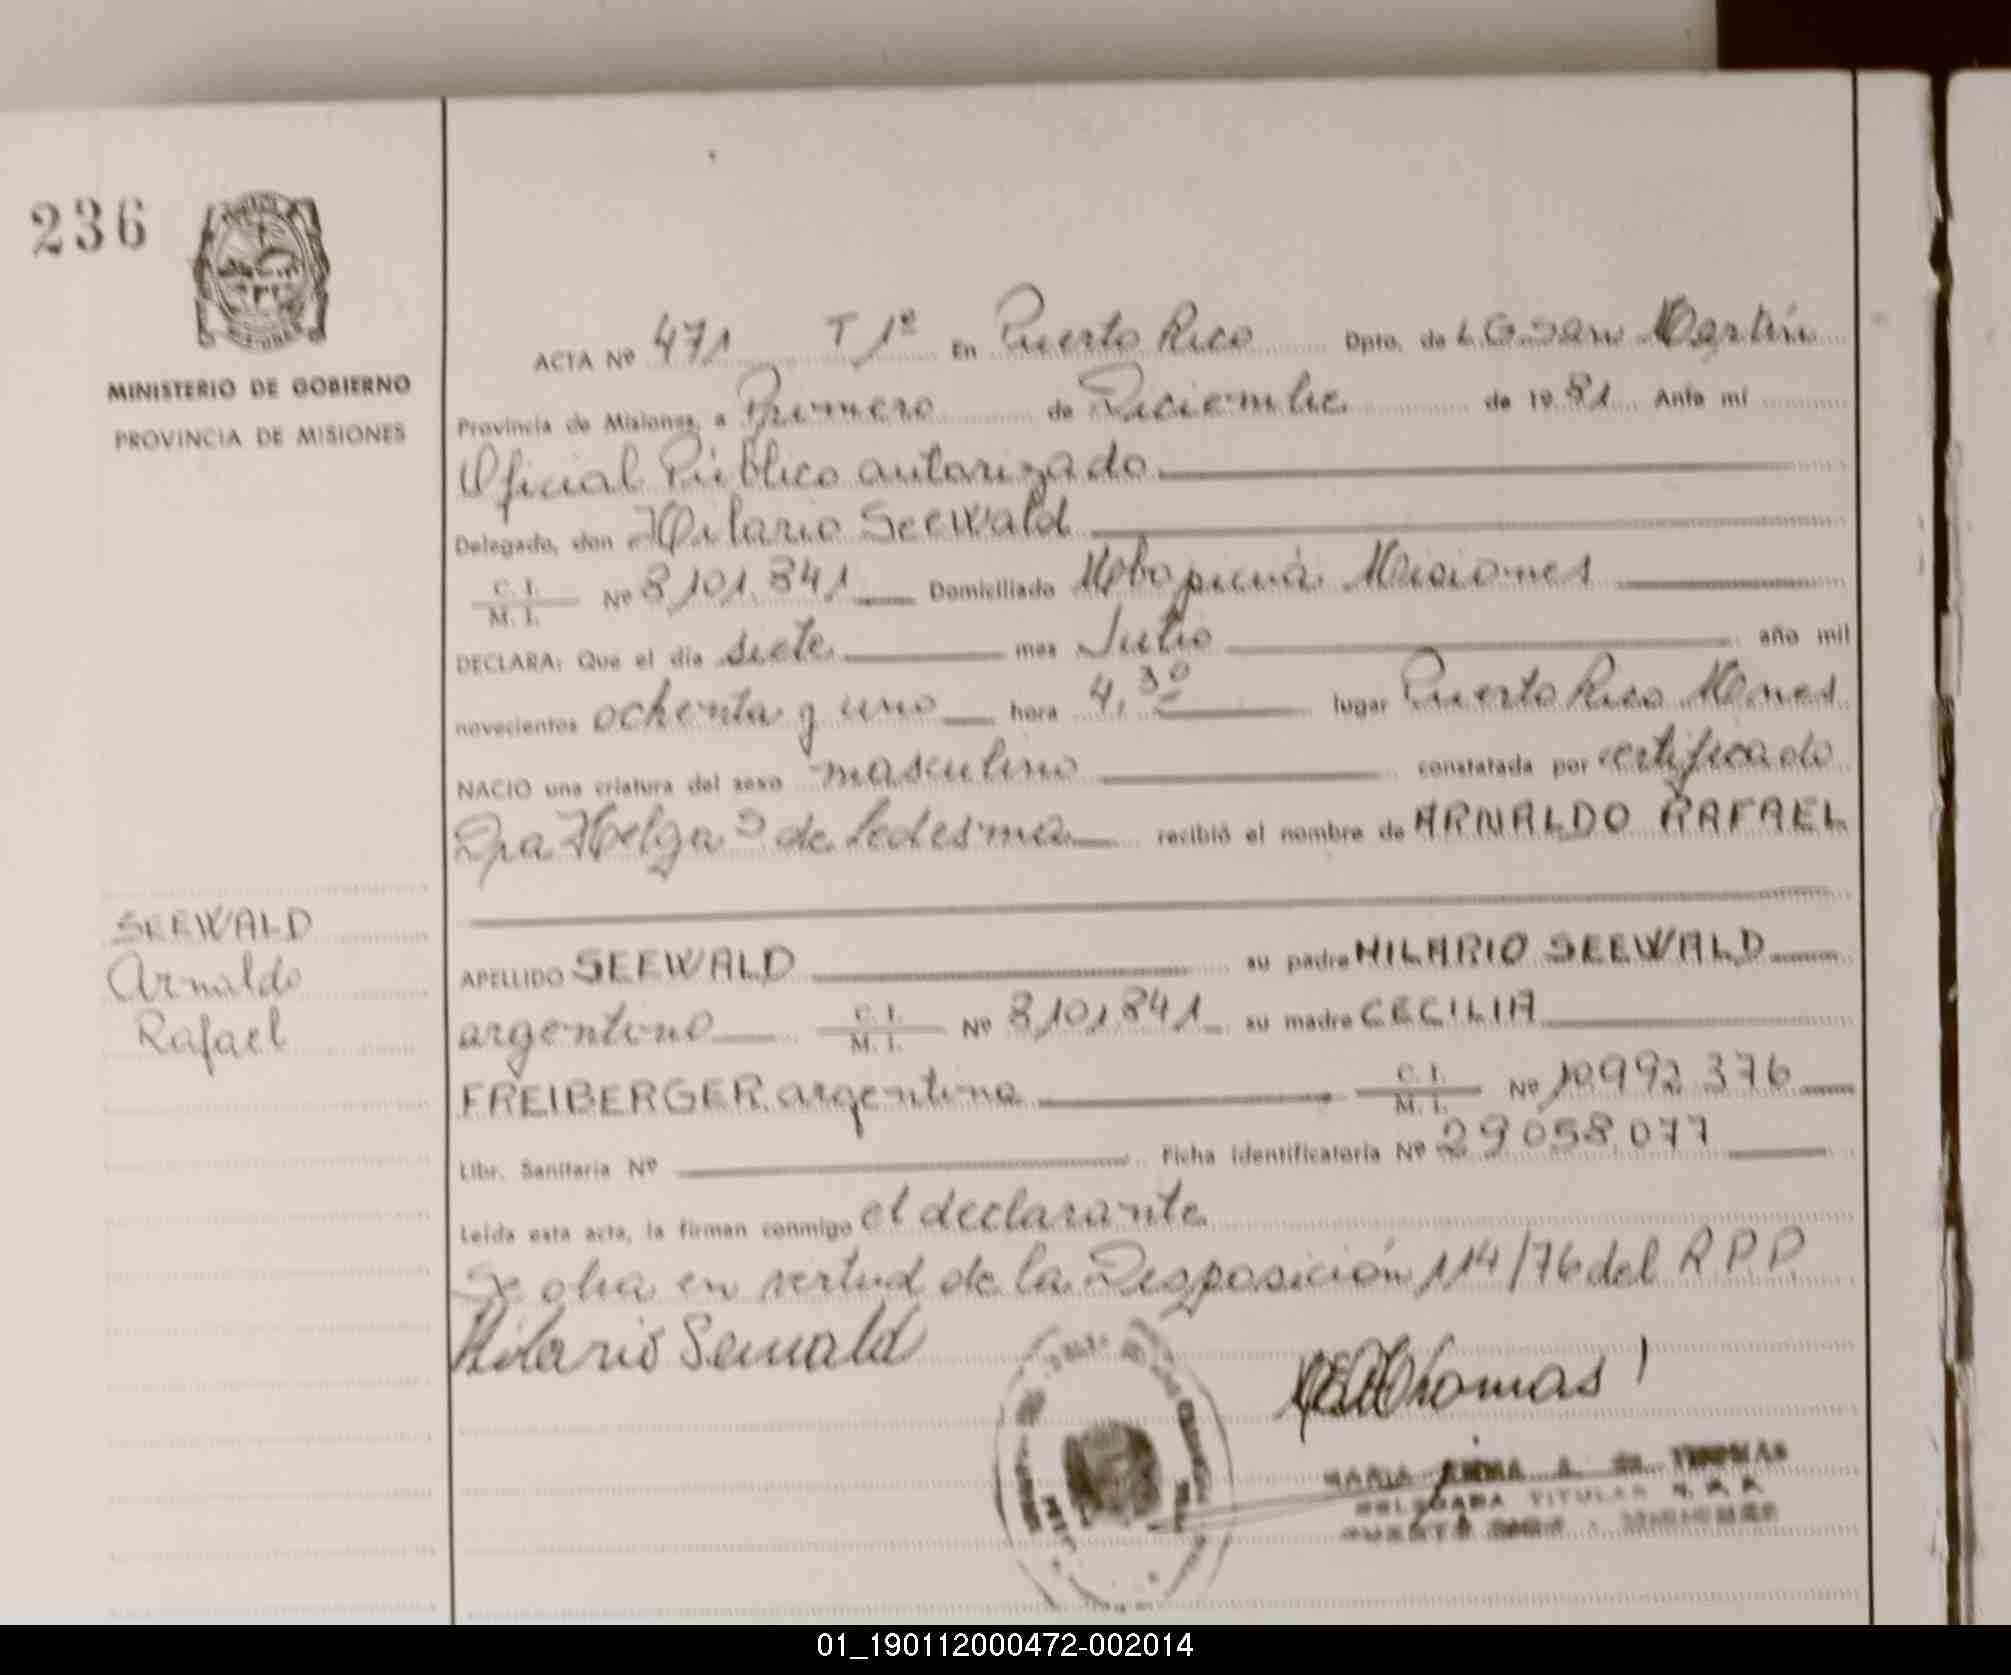 236
MINISTERIO DE GOBIERNO
PROVINCIA DE MISIONES
ACTA Nº 471 T 1º En Puerto Rico Dpto. de L G. San Martín
Provincia de Misiones, a Primero de Diciembre de 1981 Ante mí
Oficial Público autorizado
Delegado, don Hilario Seewald
C. I.
M. I.
Nº 8,101.841 Domiciliado Mbopicuá Misiones
DECLARA: Que el día siete mes Julio año mil
novecientos ochenta y uno hora 4,30 lugar Puerto Rico Mnes
NACIO una criatura del sexo masculino constatada por certificado
Dra Helga S de Ledesma recibió el nombre de ARNALDO RAFAEL
SEEWALD
Arnaldo
Rafael
APELLIDO SEEWALD su padre HILARIO SEEWALD
argentino C. I. M. I. Nº 8,101,841 su madre CECILIA
FREIBERGER argentina C. I. M. I. Nº 10.992.376
Libr. Sanitaria Nº Ficha identificatoria Nº 29058.077
Leída esta acta, la firman conmigo el declarante
Se obra en virtud de la Disposición 114/76 del R P P
Hilario Seewald
Thomas
MARIA A. de THOMAS
DELEGADA TITULAR
PUERTO RICO - MISIONES
01_190112000472-002014